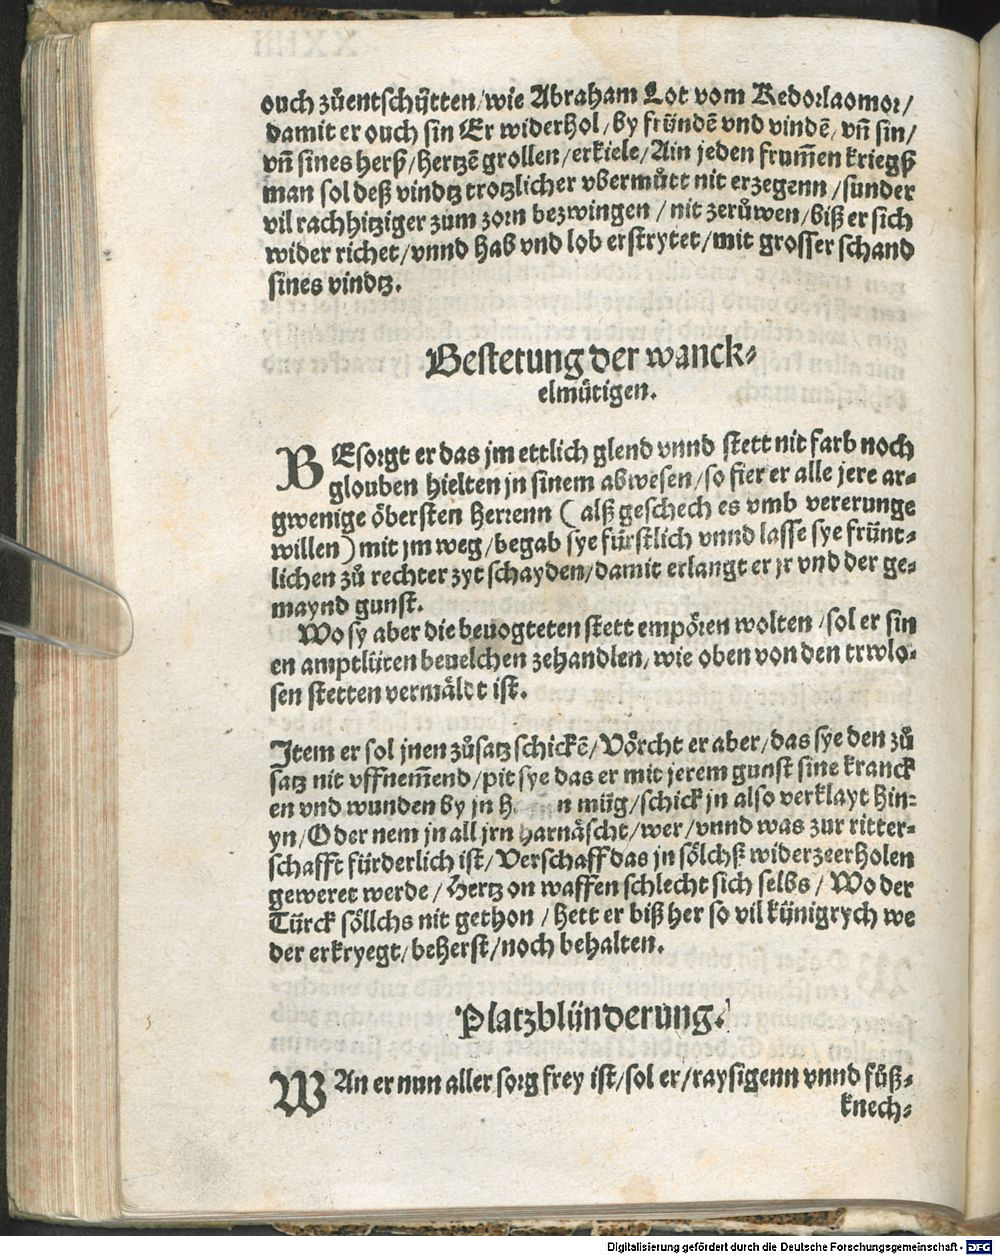 ouch zůentschůtten/wie Abraham Lot vom Kedorlaomor/
damit er ouch sin Er widerhol/by fründē vnd vindē/vn̄ sin/
vn̄ sines herß/hertzē grollen/erkiele/Ain jeden frum̄en kriegß
man sol deß vindtz trotzlicher vbermůtt nit erzegenn/sunder
vil rachhitziger zum zorn bezwingen/nit zerůwen/biß er sich
wider richet/vnnd hab vnd lob erstrytet/mit grosser schand
sines vindtz.
Bestetung der wanck⸗
elmůtigen.
BEsorgt er das jm ettlich glend vnnd stett nit farb noch
glouben hielten jn sinem abwesen/so fier er alle jere ar⸗
gwenige öbersten Herrenn (alß geschech es vmb vererunge
willen) mit jm weg/begab sye fürstlich vnnd lasse sye frünt⸗
lichen zů rechter zyt schayden/damit erlangt er jr vnd der ge⸗
maynd gunst.
Wo sy aber die beuogteten stett empören wolten/sol er sin
en amptlüten beuelchen zehandlen, wie oben von den trwlo⸗
sen stetten vermäldt ist.
Item er sol jnen zůsatz schickē/Vörcht er aber/das sye den zů
satz nit vffnem̄end/pit sye das er mit jerem gunst sine kranck
en vnd wunden by jn h n müg/schick jn also verklayt hin⸗
yn/Oder nem jn all jrn harnäscht/wer/vnnd was zur ritter⸗
schafft fürderlich ist/Verschaff das jn sölchß widerzeerholen
geweret werde/Hertz on waffen schlecht sich selbs/Wo der
Türck söllchs nit gethon/hett er biß her so vil künigrych we
der erkryegt/beherst/noch behalten.
Platzblünderung.
WAn er nun aller sorg frey ist/sol er/raysigenn vnnd fůß⸗
knech⸗
Digitalisierung gefördert durch die Deutsche Forschungsgemeinschaft - DFG